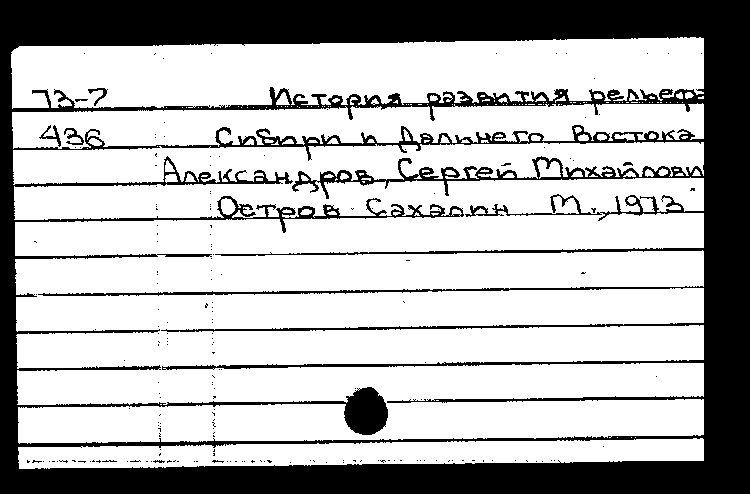 73-7 История развития рельефа
436 Сибири и Дальнего Востока
Александров, Сергей Михайлови
Остров Сахалин М., 1973